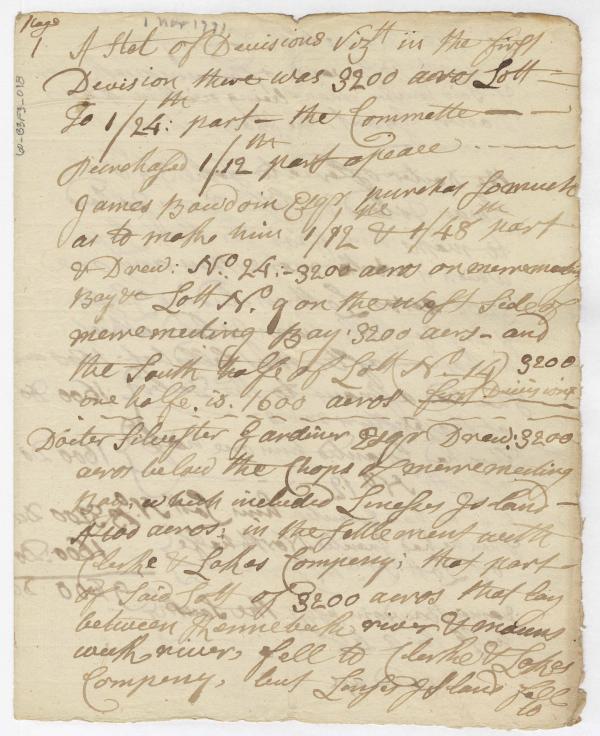 Page
1
1 Nov 1771
60-B3F3-018
A Stat of Devisions Viztt in the first
Devision there was 3200 acros Lott =
To 1/24th: part — the Committe — —
purchased 1/12th part apeace . — — —
James Bawdoin Esqr purchas so much
as to make him 1/12th & 1/48th part
& Drew: No. 24: - 3200 acros on merremeeting
Bay & Lott No. 9 on the west Side of
merremeeting Bay . 3200 acrs - and
the South halfe of Lott No. 14) 3200
one halfe is 1600 acros first Devision
Docter Silvester Gardiner Esqr Drew: 3200
acros below the Chops of merremeeting
Bay, which included Linesses Island —
acros; in the settlement with
Clerke & Lakes Company; that part
of Said Lott of 3200 acros that lay
between Kennebeck river &
river, fell to Clerke & Lakes
Company, but Linses Island fell
to